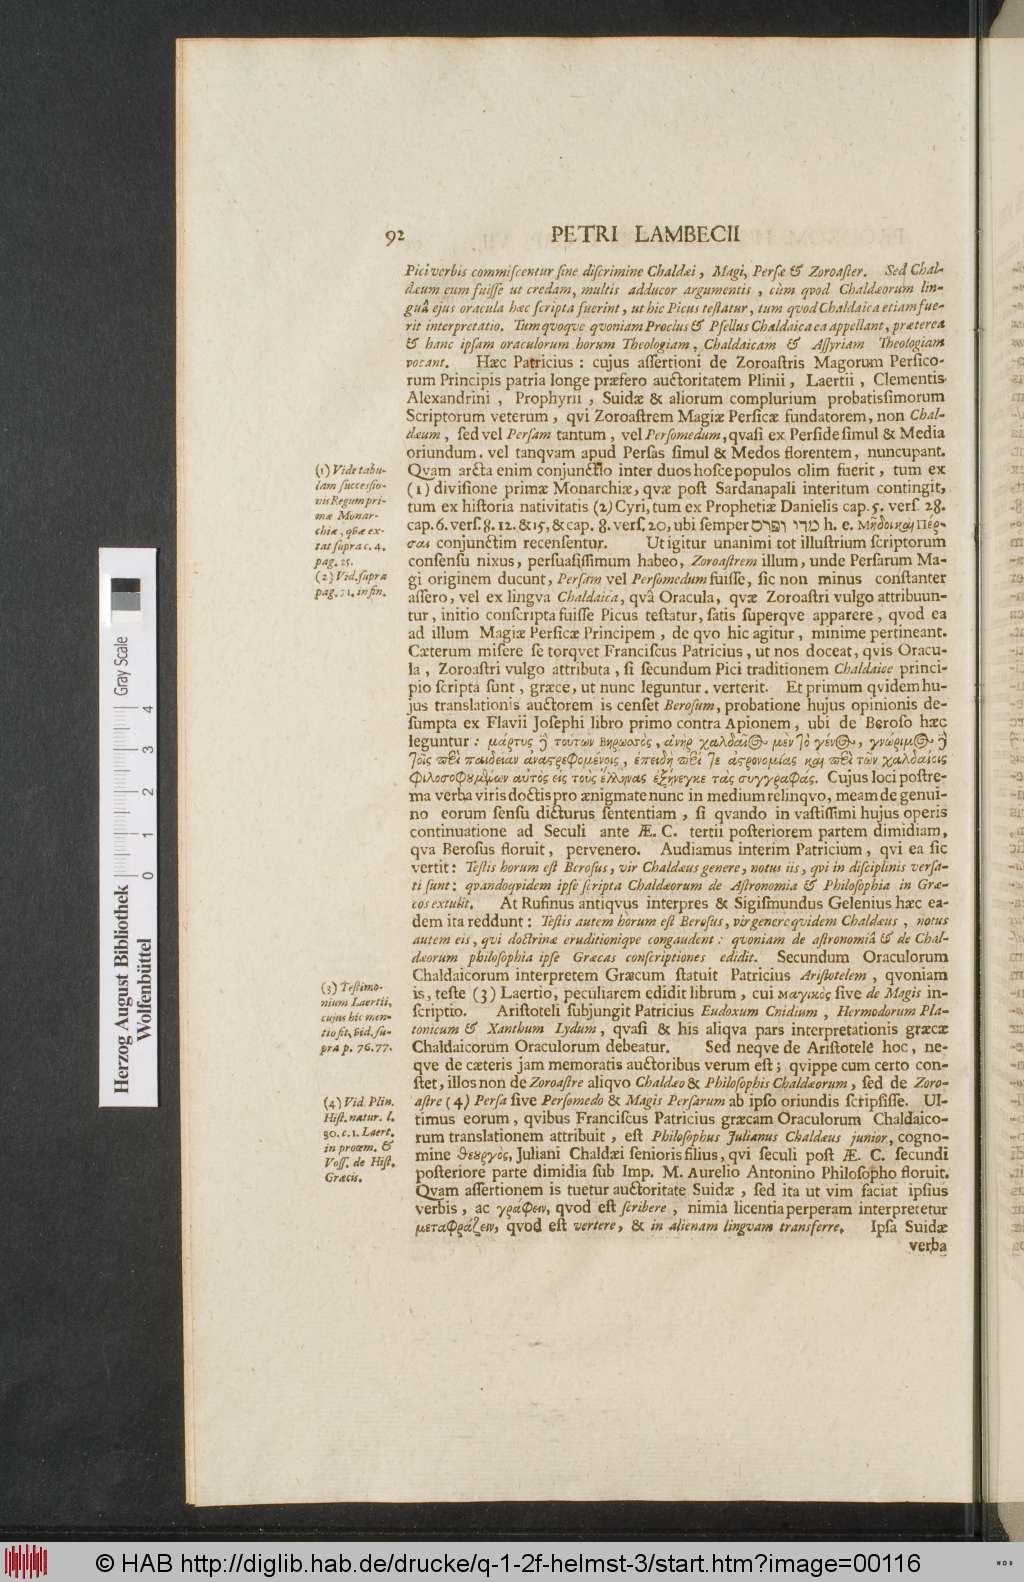 92 PETRI LAMBECII
Pici verbis commiſcentur ſine diſcrimine Chaldæi, Magi, Perſæ & Zoroaſter. Sed Chal-
dæum eum fuiſſe ut credam, multis adducor argumentis, cùm qvod Chaldæorum lin-
guâ ejus oracula hæc ſcripta fuerint, ut hic Picus teſtatur, tum qvod Chaldaica etiam fue-
rit interpretatio. Tum qvoqve qvoniam Proclus & Pſellus Chaldaica ea appellant, præterea
& hanc ipſam oraculorum horum Theologiam, Chaldaicam & Aſſyriam Theologiam
vocant. Hæc Patricius: cujus aſſertioni de Zoroaſtris Magorum Perſico-
rum Principis patria longe præfero auctoritatem Plinii, Laertii, Clementis
Alexandrini, Prophyrii, Suidæ & aliorum complurium probatiſſimorum
Scriptorum veterum, qvi Zoroaſtrem Magiæ Perſicæ fundatorem, non Chal-
dæum, ſed vel Perſam tantum, vel Perſomedum, qvaſi ex Perſide ſimul & Media
oriundum. vel tanqvam apud Perſas ſimul & Medos florentem, nuncupant.
Qvam arcta enim conjunctio inter duos hoſce populos olim fuerit, tum ex
(1) diviſione primæ Monarchiæ, qvæ poſt Sardanapali interitum contingit,
tum ex hiſtoria nativitatis (2) Cyri, tum ex Prophetiæ Danielis cap. 5. verſ. 28.
cap. 6. verſ. 8. 12. & 15, & cap. 8. verſ. 20, ubi ſemper מדי ופרס h. e. Μῆδοι καὶ Πέρ-
σαι conjunctim recenſentur. Ut igitur unanimi tot illuſtrium ſcriptorum
conſenſu nixus, perſuaſiſſimum habeo, Zoroaſtrem illum, unde Perſarum Ma-
gi originem ducunt, Perſam vel Perſomedum fuiſſe, ſic non minus conſtanter
aſſero, vel ex lingva Chaldaica, qvâ Oracula, qvæ Zoroaſtri vulgo attribuun-
tur, initio conſcripta fuiſſe Picus teſtatur, ſatis ſuperqve apparere, qvod ea
ad illum Magiæ Perſicæ Principem, de qvo hic agitur, minime pertineant.
Cæterum miſere ſe torqvet Franciſcus Patricius, ut nos doceat, qvis Oracu-
la, Zoroaſtri vulgo attributa, ſi ſecundum Pici traditionem Chaldaice princi-
pio ſcripta ſunt, græce, ut nunc leguntur. verterit. Et primum qvidem hu-
jus translationis auctorem is cenſet Beroſum, probatione hujus opinionis de-
ſumpta ex Flavii Joſephi libro primo contra Apionem, ubi de Beroſo hæc
leguntur: μάρτυς δὲ τούτων Βηρωσσὸς, ἀνὴρ χαλδαῖος μὲν τὸ γένος, γνώριμος δὲ
τοῖς περὶ παιδείαν ἀναστρεφομένοις, ἐπειδὴ περί τε ἀστρονομίας καὶ περὶ τῶν χαλδαίοις
φιλοσοφουμένων αὐτὸς εἰς τοὺς ἕλληνας ἐξήνεγκε τὰς συγγραφάς. Cujus loci poſtre-
ma verba viris doctis pro ænigmate nunc in medium relinqvo, meam de genui-
no eorum ſenſu dicturus ſententiam, ſi qvando in vaſtiſſimi hujus operis
continuatione ad Seculi ante Æ. C. tertii poſteriorem partem dimidiam,
qva Beroſus floruit, pervenero. Audiamus interim Patricium, qvi ea ſic
vertit: Teſtis horum eſt Beroſus, vir Chaldæus genere, notus iis, qvi in diſciplinis verſa-
ti ſunt: qvandoqvidem ipſe ſcripta Chaldæorum de Aſtronomia & Philoſophia in Græ-
cos extulit. At Rufinus antiqvus interpres & Sigiſmundus Gelenius hæc ea-
dem ita reddunt: Teſtis autem horum eſt Beroſus, vir genere qvidem Chaldæus, notus
autem eis, qvi doctrinæ eruditioniqve congaudent: qvoniam de aſtronomiâ & de Chal-
dæorum philoſophia ipſe Græcas conſcriptiones edidit. Secundum Oraculorum
Chaldaicorum interpretem Græcum ſtatuit Patricius Ariſtotelem, qvoniam
is, teſte (3) Laertio, peculiarem edidit librum, cui μαγικὸς ſive de Magis in-
ſcriptio. Ariſtoteli ſubjungit Patricius Eudoxum Cnidium, Hermodorum Pla-
tonicum & Xanthum Lydum, qvaſi & his aliqva pars interpretationis græcæ
Chaldaicorum Oraculorum debeatur. Sed neqve de Ariſtotele hoc, ne-
qve de cæteris jam memoratis auctoribus verum eſt; qvippe cum certo con-
ſtet, illos non de Zoroaſtre aliqvo Chaldæo & Philoſophis Chaldæorum, ſed de Zoro-
aſtre (4) Perſa ſive Perſomedo & Magis Perſarum ab ipſo oriundis ſcripſiſſe. Ul-
timus eorum, qvibus Franciſcus Patricius græcam Oraculorum Chaldaico-
rum translationem attribuit, eſt Philoſophus Julianus Chaldæus junior, cogno-
mine θεουργὸς, Juliani Chaldæi ſenioris filius, qvi ſeculi poſt Æ. C. ſecundi
poſteriore parte dimidia ſub Imp. M. Aurelio Antonino Philoſopho floruit.
Qvam aſſertionem is tuetur auctoritate Suidæ, ſed ita ut vim faciat ipſius
verbis, ac γράφειν, qvod eſt ſcribere, nimia licentia perperam interpretetur
μεταφράζειν, qvod eſt vertere, & in alienam lingvam transferre. Ipſa Suidæ
verba
(1) Vide tabu-
lam ſucceſſio-
nis Regum pri-
mæ Monar-
chiæ, qvæ ex-
tat ſupra c. 4.
pag. 25.
(2) Vid. ſupra
pag. 71. in fin.
(3) Teſtimo-
nium Laertii,
cujus hic men-
tio fit, vid. ſu-
pra p. 76. 77.
(4) Vid. Plin.
Hiſt. natur. l.
30. c. 1. Laert.
in proœm. &
Voſſ. de Hiſt.
Græcis.
Herzog August Bibliothek
Wolfenbüttel
Gray Scale
0 1 2 3 4
© HAB http://diglib.hab.de/drucke/q-1-2f-helmst-3/start.htm?image=00116